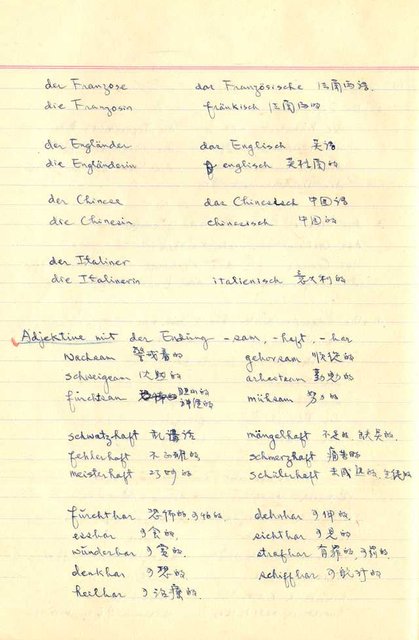 der Franzose das Französische 法兰西语
die Französin fränkisch 法兰西的
der Engländer das Englisch 英语
die Engländerin englisch 英格兰的
der Chinese das Chinesisch 中国语
die Chinesin chinesisch 中国的
der Italiner
die Italinerin italienisch 意大利的
Adjektive mit der Endung -sam, -haft, -bar
wachsam 警戒着的 gehorsam 顺从的
schweigsam 沉默的 arbeitsam 勤勉的
fürchtsam 胆小的 神怯的 mühsam 努力的
schwatzhaft 乱讲话 mängelhaft 不足的, 缺点的
fehlerhaft 不正确的 schmerzhaft 痛苦的
meisterhaft 巧妙的 schülerhaft
fürchtbar 恐怖的, 可怕的 dehnbar 可伸的
essbar 可食的 sichtbar 可见的
wünderbar 可 的 strafbar 有罪的, 可罚的
denkbar 可想的 schiffbar 可航行的
heilbar 可治疗的